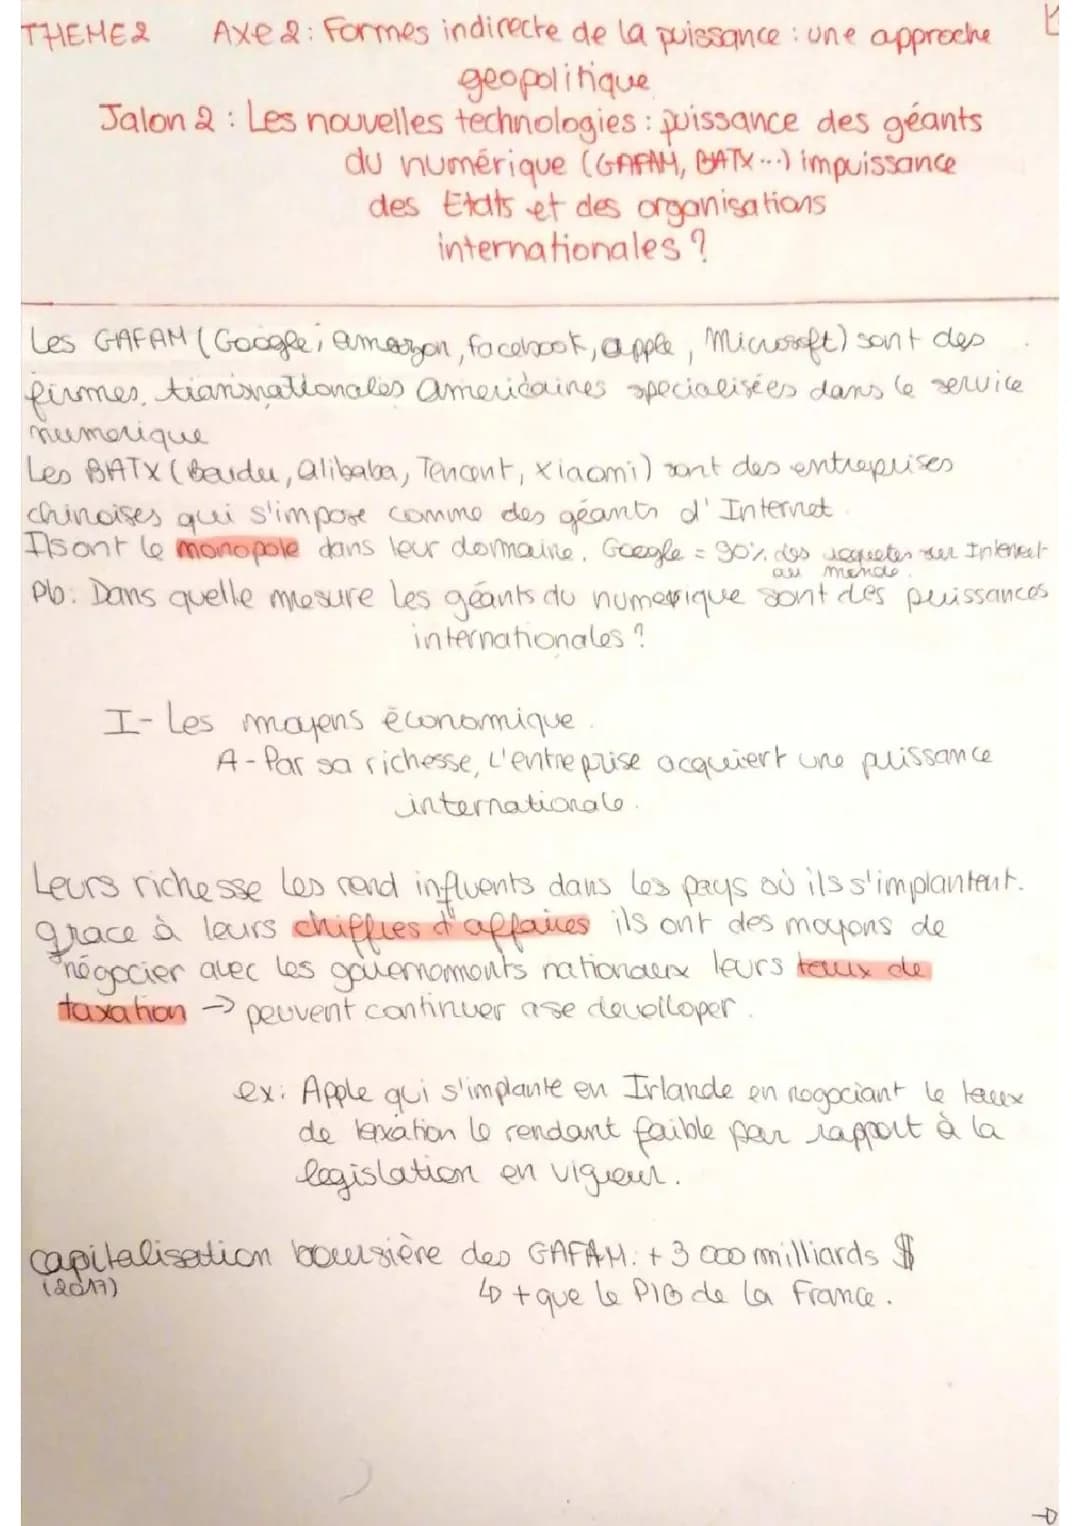 THEME2 Axe 2: Formes indirecte de la puissance : une approche
geopolitique
Jalon 2 : Les nouvelles technologies : puissance des géants
du numérique (GAFAM, BATX...) impuissance
des Etats et des organisations
internationales ?
Les GAFAM (Google, amazon, facebook, apple, Microsoft) sont des
firmes transnationales americaines specialisées dans le service
numerique
Les BATX (Baidu, alibaba, Tencent, xiaomi) sont des entreprises
chinoises qui s'impose comme des géants d'Internet.
Ils ont le monopole dans leur domaine. Google = 90% des requetes sur Internet
au monde.
Pb: Dans quelle mesure les géants du numerique sont des puissances
internationales ?
I- Les moyens économique.
A- Par sa richesse, l'entreprise acquiert une puissance
internationale.
Leurs richesse les rend influents dans les pays où ils s'implantent.
grace à leurs chiffres d'affaires ils ont des moyens de
négocier avec les gouvernements nationaux leurs taux de
taxation → peuvent continuer a se develloper.
ex: Apple qui s'implante en Irlande en negociant le taux
de taxation le rendant faible par rapport à la
legislation en vigueur.
capitalisation boursière des GAFAM: + 3 000 milliards $
(2017) ↳ + que le PIB de la France.